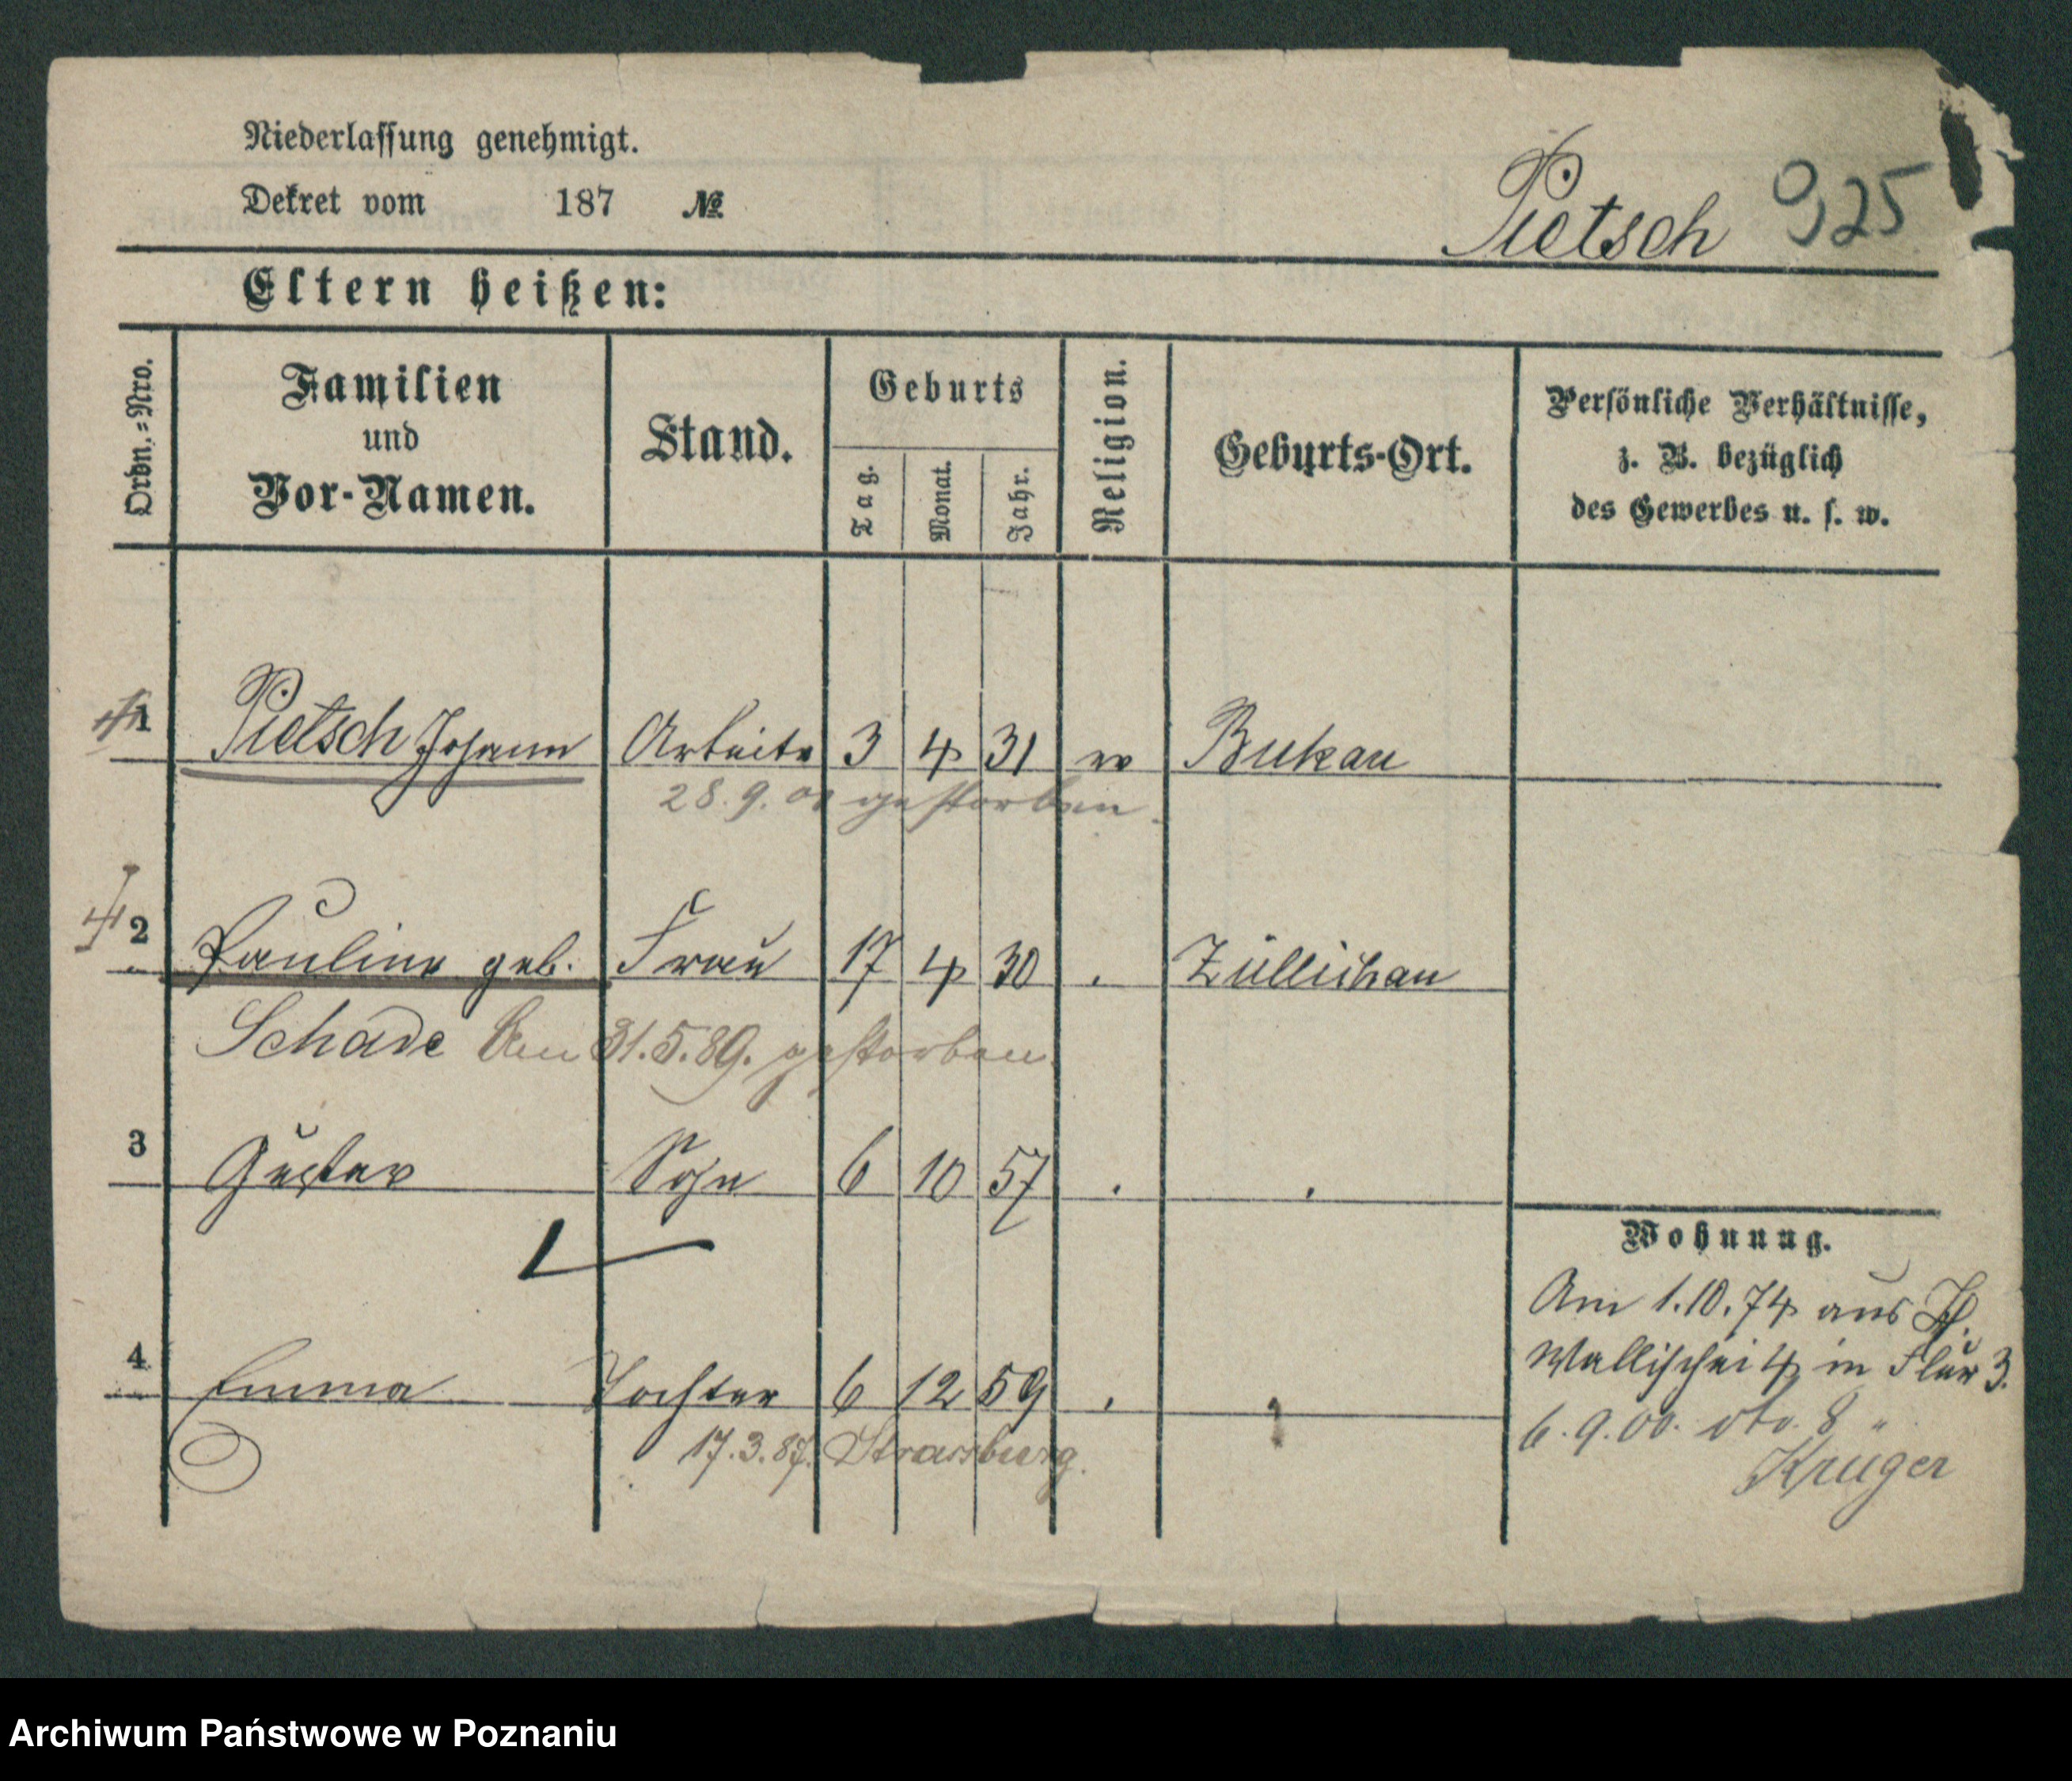 Niederlassung genehmigt.
Dekret vom 187 №
Pietsch 925
Eltern heißen:
Ordn.=Nro.
Familien
und
Vor-Namen.
Stand.
Geburts
Tag.
Monat.
Jahr.
Religion.
Geburts-Ort.
Persönliche Verhältnisse,
z. B. bezüglich
des Gewerbes u. s. w.
1 Pietsch Johann Arbeiter 3 4 31 Bukau
28.9.00 gestorben.
2 Pauline geb. Frau 17 4 30 . Züllichau
Schade Am 31.5.89. gestorben.
3 Gustav Sohn 6 10 57 . .
Wohnung.
Am 1.10.74 aus
Wallischei 4 in Flur 3.
4 Emma Tochter 6 12 59 .
6.9.00. dto. 8 "
17.3.87. Strassburg.
Krüger
Archiwum Państwowe w Poznaniu